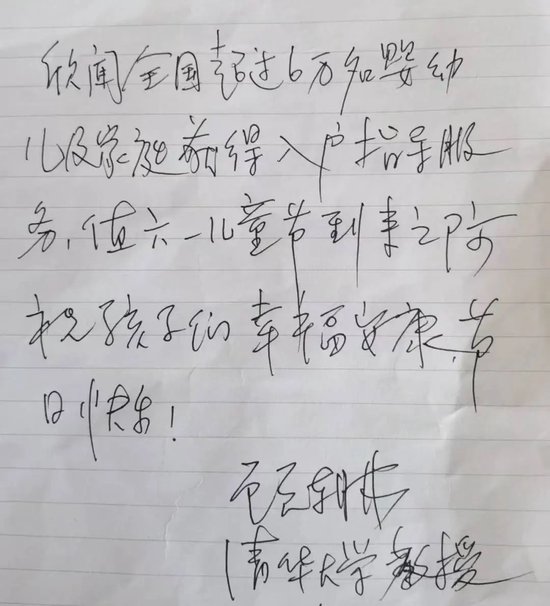 欣闻全国超过6万名婴幼
儿及家庭获得入户指导服
务,值六一儿童节到来之际
祝孩子们幸福安康,节
日快乐!
清华大学教授